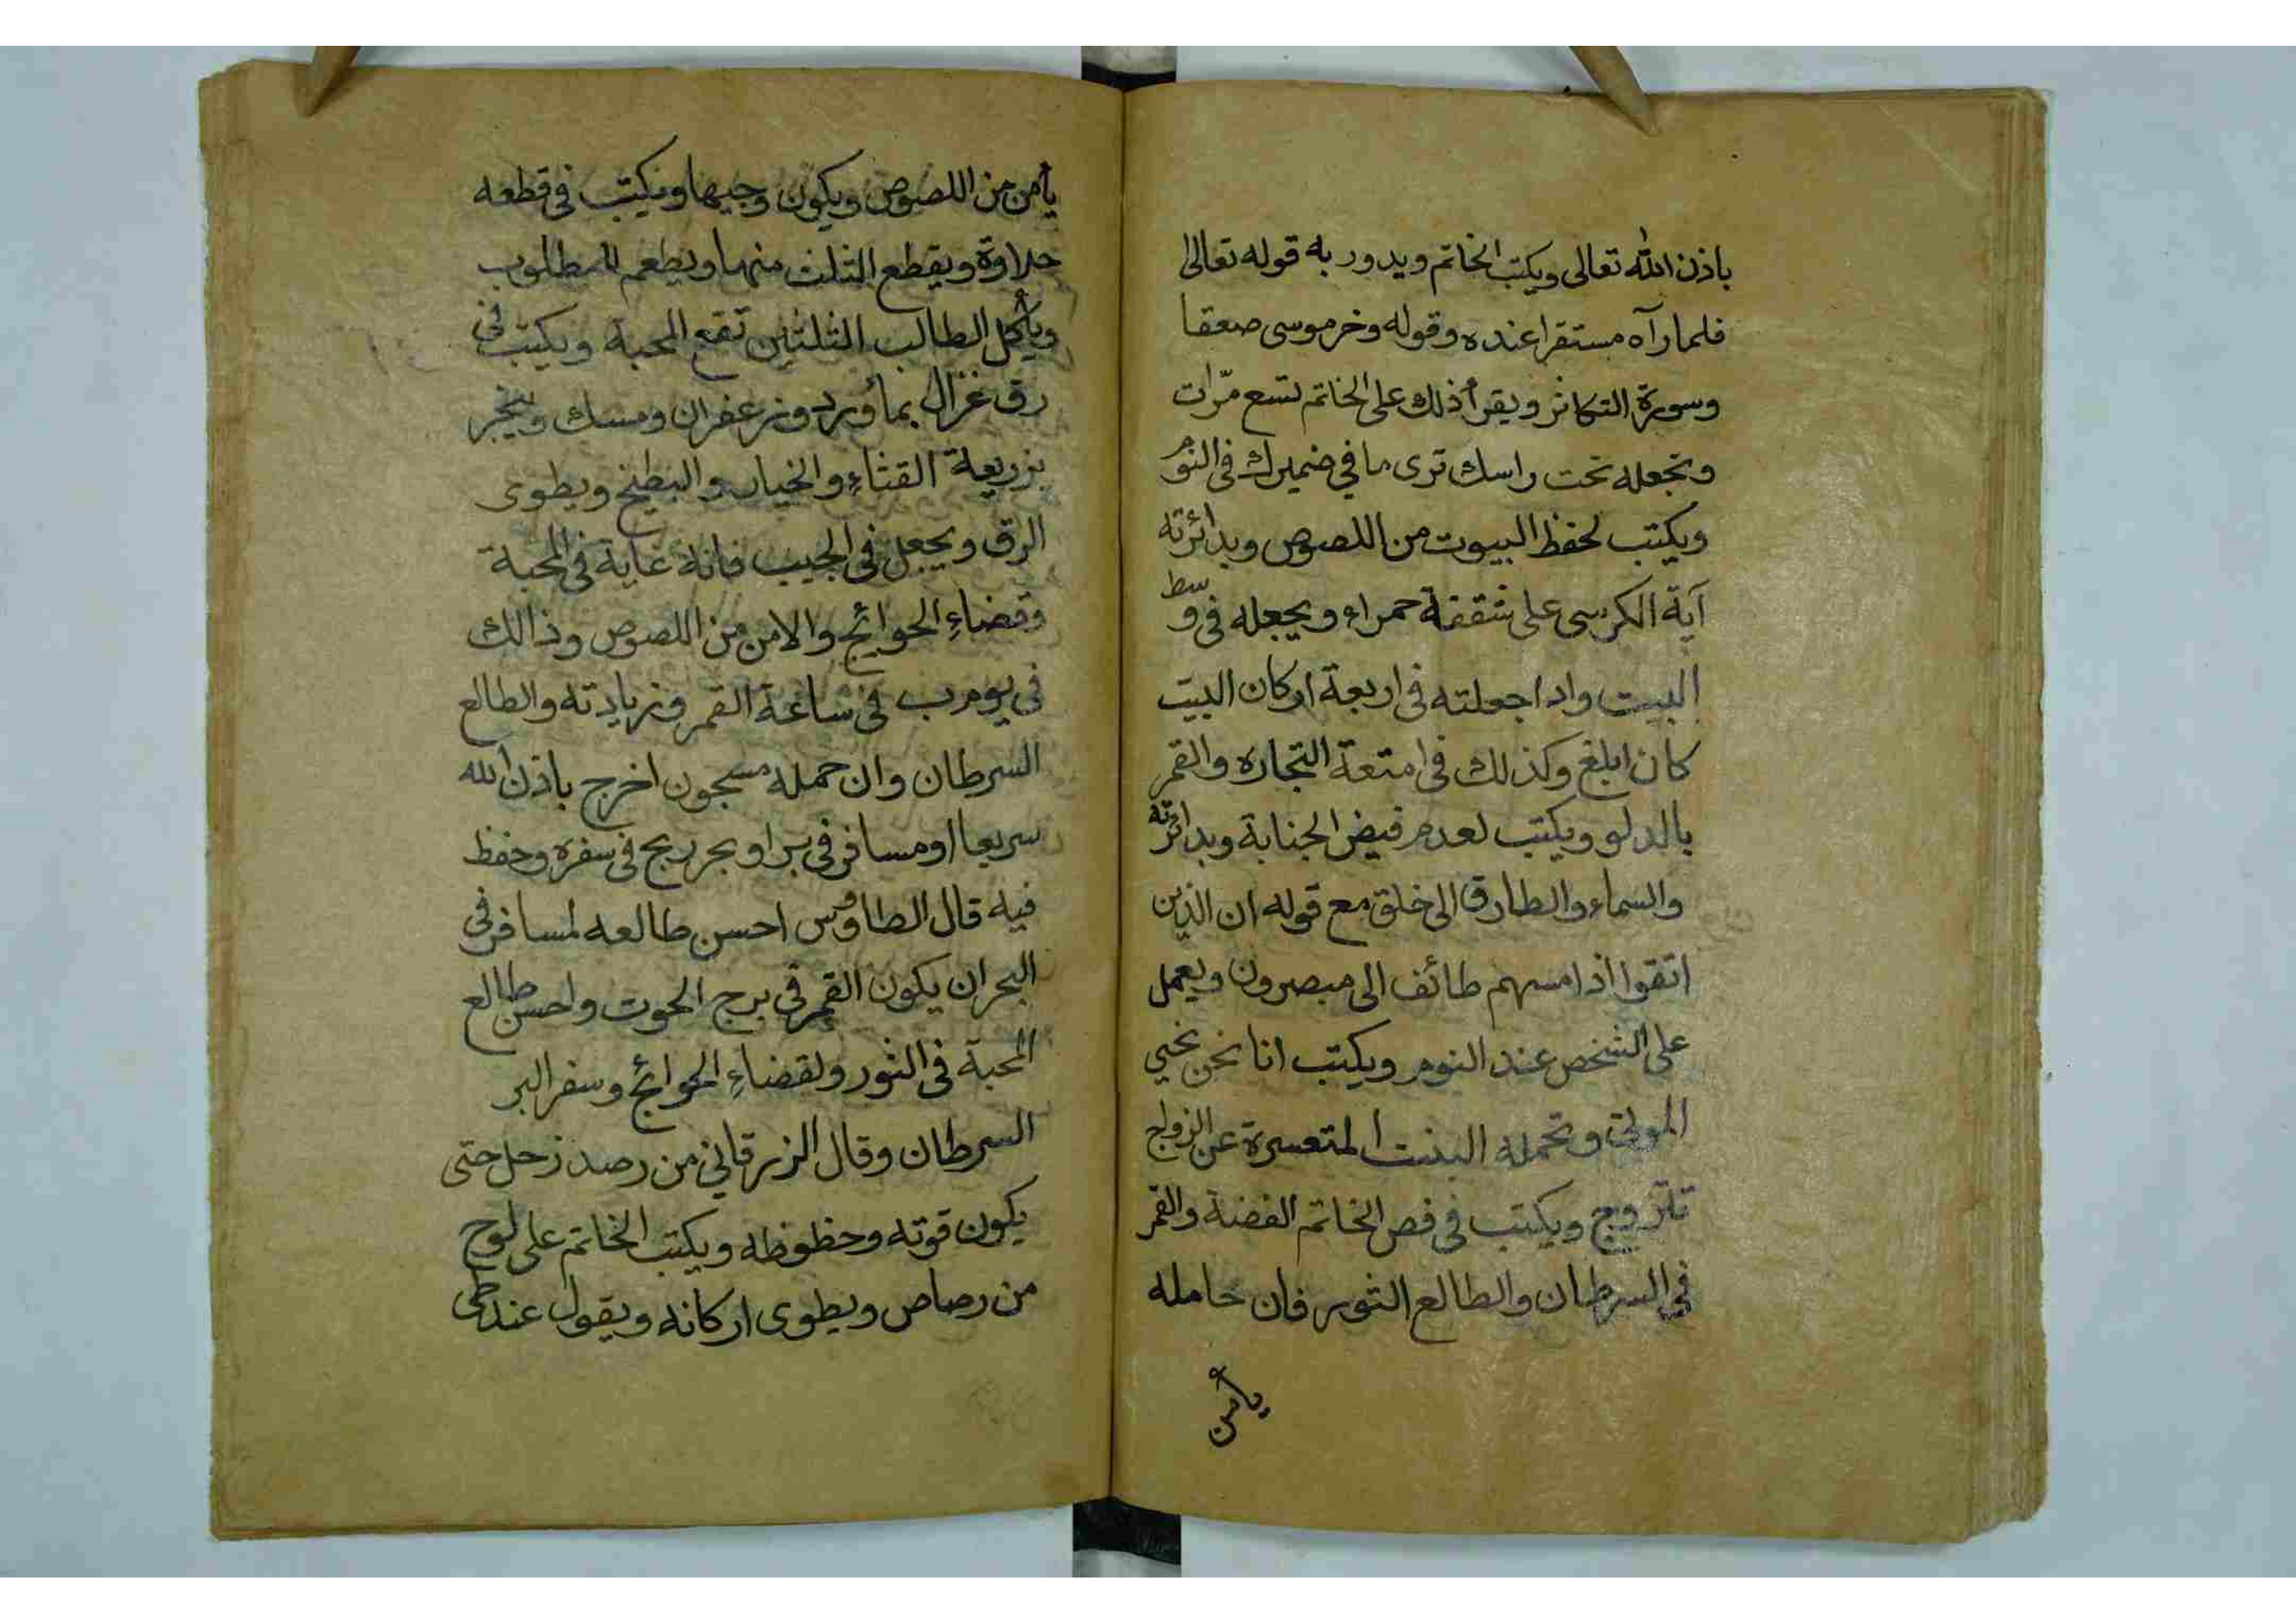 باذن الله تعالى ويكتب الخاتم ويدور به قوله تعالى
فلما رآه مستقرا عنده وقوله وخر موسى صعقا
وسورة التكاثر ويقرأ ذلك على الخاتم تسع مرّات
وتجعله تحت راسك ترى ما في ضميرك في النوم
ويكتب لحفظ البيوت من اللصوص وبدائرته
آية الكرسى على شقفة حمراء ويجعله فى وسط
البيت واذا جعلته فى اربعة اركان البيت
كان ابلغ وكذلك فى امتعة التجاره والقمر
بالدلو ويكتب لعدم فيض الجنابة وبدائرته
والسماء والطارق الى خلق مع قوله ان الذين
اتقوا اذا مسهم طائف الى مبصرون ويعمل
على الشخص عند النوم ويكتب انا نحن نحيي
الموتى وتحمله البنت المتعسرة عن الزواج
تتزوج ويكتب فى فص الخاتم الفضة والقمر
في السرطان والطالع الثور فان حامله
يأمن
يأمن من اللصوص ويكون وجيها ويكتب فى قطعه
حلاوة ويقطع الثلث منها ويطعم للمطلوب
ويأكل الطالب الثلثين تقع المحبة ويكتب فى
رق غزال بمأ ورد وزعفران ومسك ويبخر
بزريعة القثاء والخيار والبطيخ ويطوى
الرق ويجعل فى الجيب فانه غاية فى المحبة
وقضاء الحوائج والامن من اللصوص وذالك
فى يوم ب فى ساعة القمر وزيادته والطالع
السرطان وان حمله مسجون اخرج باذن الله
سريعا او مسافر فى بر او بحر ربح فى سفره وحفظ
فيه قال الطاوس احسن طالعه لمسافر فى
البحر ان يكون القمر فى برج الحوت واحسن طالع
المحبة فى الثور ولقضاء الحوائج وسفر البر
السرطان وقال الزرقاني من رصد زحل حتى
يكون قوته وحظوظه ويكتب الخاتم على لوح
من رصاص ويطوى اركانه ويقول عند طى